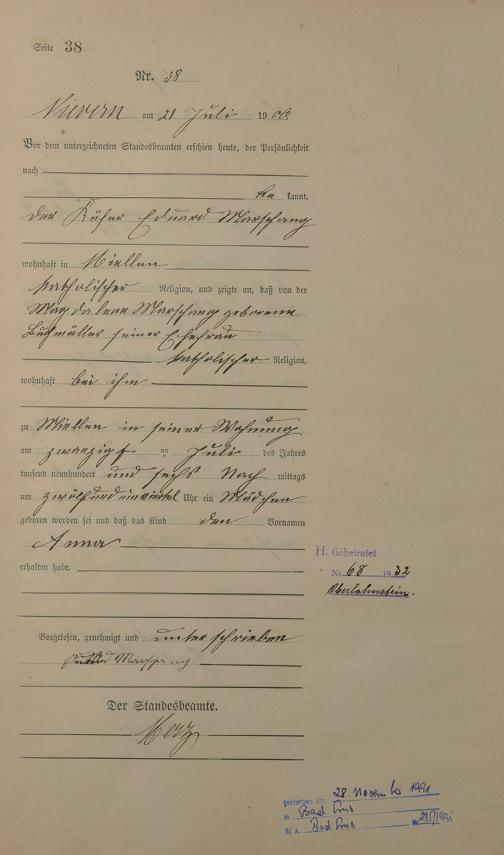 Seite 38
Nr. 38
Nievern am 21 Juli 1906
Vor dem unterzeichneten Standesbeamten erschien heute, der Persönlichkeit
nach
be kannt,
der Küfer Eduard Marschang
wohnhaft in Miellen
katholischer Religion, und zeigte an, daß von der
Magdalena Marschang geborenen
Buchmüller seiner Ehefrau
katholischer Religion,
wohnhaft bei ihm
zu Miellen in seiner Wohnung
am zwanzigst en Juli des Jahres
tausend neunhundert und sechs Nach mittags
um zwölf und einviertel Uhr ein Mädchen
geboren worden sei und daß das Kind den Vornamen
Anna
erhalten habe.
H. Geheiratet
Nr. 68 1932
Oberlahnstein.
Vorgelesen, genehmigt und unterschrieben
Eduard Marschang
Der Standesbeamte.
gestorben am: 28. November 1991
in Bad Ems
St. A. Bad Ems Nr.